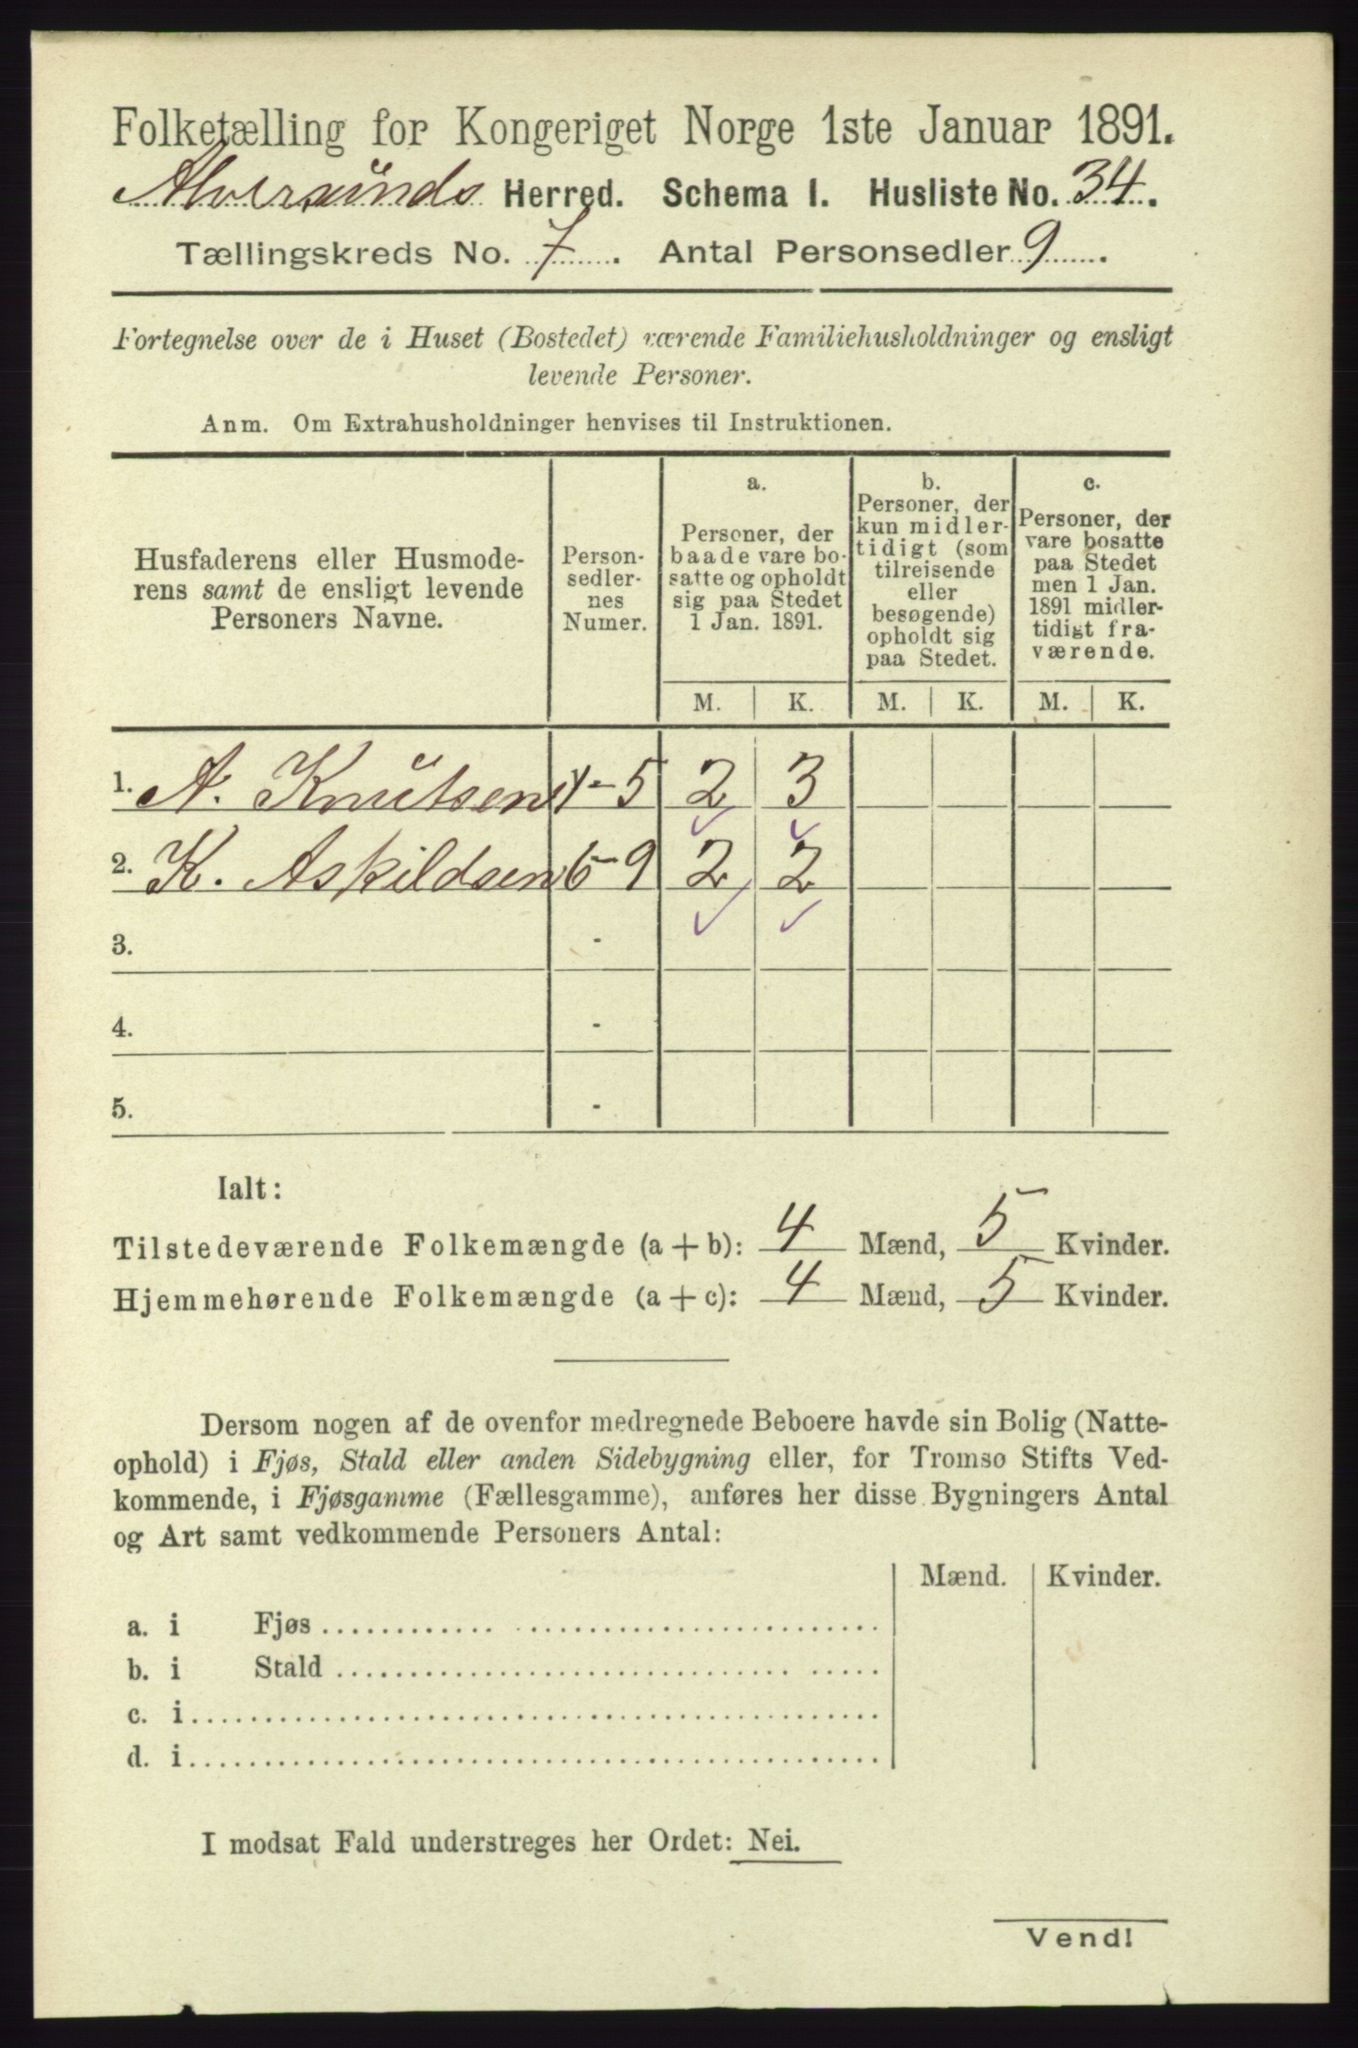 Folketælling for Kongeriget Norge 1ste Januar 1891.
Alversunds Herred. Schema I. Husliste No. 34.
Tællingskreds No. 7. Antal Personsedler 9.
Fortegnelse over de i Huset (Bostedet) værende Familiehusholdninger og ensligt
levende Personer.
Anm. Om Extrahusholdninger henvises til Instruktionen.
Husfaderens eller Husmode-
rens samt de ensligt levende
Personers Navne.
Person-
sedler-
nes
Numer.
a.
Personer, der
baade vare bo-
satte og opholdt
sig paa Stedet
1 Jan. 1891.
b.
Personer, der
kun midler-
tidigt (som
tilreisende
eller
besøgende)
opholdt sig
paa Stedet.
c.
Personer, der
vare bosatte
paa Stedet
men 1 Jan.
1891 midler-
tidigt fra-
værende.
M. K. M. K. M. K.
1. A. Knutsen 1-5 2 3
2. K. Askildsen 6-9 2 2
3. -
4. -
5. -
Ialt:
Tilstedeværende Folkemængde (a+b): 4 Mænd, 5 Kvinder.
Hjemmehørende Folkemængde (a+c): 4 Mænd, 5 Kvinder.
Dersom nogen af de ovenfor medregnede Beboere havde sin Bolig (Natte-
ophold) i Fjøs, Stald eller anden Sidebygning eller, for Tromsø Stifts Ved-
kommende, i Fjøsgamme (Fællesgamme), anføres her disse Bygningers Antal
og Art samt vedkommende Personers Antal:
Mænd. Kvinder.
a. i Fjøs
b. i Stald
c. i
d. i
I modsat Fald understreges her Ordet: Nei.
Vend!